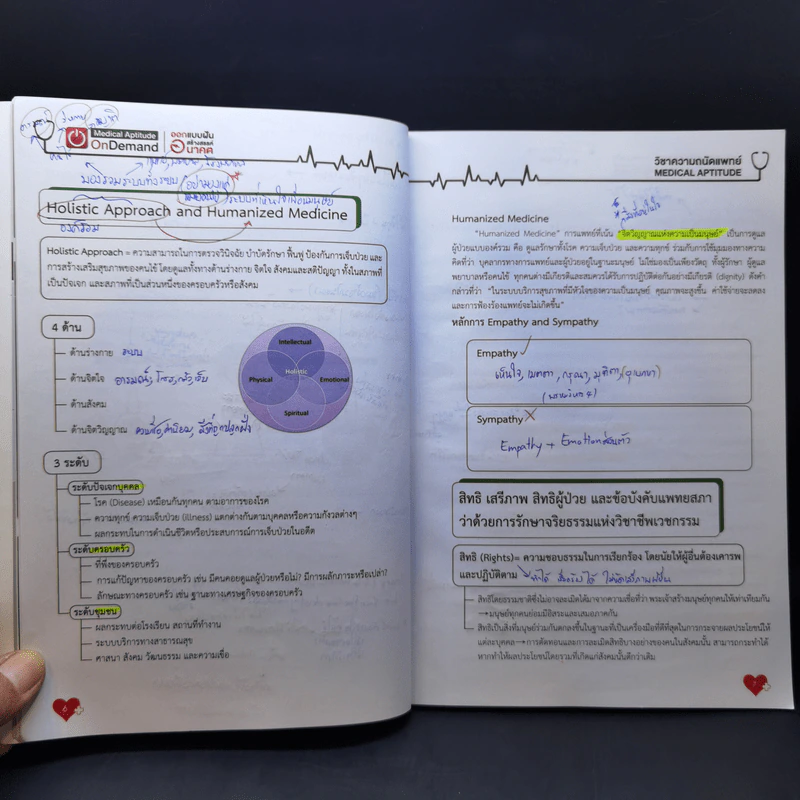 Medical Aptitude
OnDemand
ออกแบบฝัน
สร้างสรรค์
อนาคต
มองรวมระบบทั้งระบบ
Holistic Approach and Humanized Medicine
องค์รวม
Holistic Approach = ความสามารถในการตรวจวินิจฉัย บำบัดรักษา ฟื้นฟู ป้องกันการเจ็บป่วย และ
การสร้างเสริมสุขภาพของคนไข้ โดยดูแลทั้งทางด้านร่างกาย จิตใจ สังคมและสติปัญญา ทั้งในสภาพที่
เป็นปัจเจก และสภาพที่เป็นส่วนหนึ่งของครอบครัวหรือสังคม
4 ด้าน
ด้านร่างกาย ระบบ
ด้านจิตใจ อารมณ์,
ด้านสังคม
ด้านจิตวิญญาณ ความเชื่อ, ค่านิยม,
Intellectual
Physical
Holistic
Emotional
Spiritual
3 ระดับ
ระดับปัจเจกบุคคล
โรค (Disease) เหมือนกันทุกคน ตามอาการของโรค
ความทุกข์ ความเจ็บป่วย (illness) แตกต่างกันตามบุคคลหรือความกังวลต่างๆ
ผลกระทบในการดำเนินชีวิตหรือประสบการณ์การเจ็บป่วยในอดีต
ระดับครอบครัว
ที่พึ่งของครอบครัว
การแก้ปัญหาของครอบครัว เช่น มีคนคอยดูแลผู้ป่วยหรือไม่? มีการผลักภาระหรือเปล่า?
ลักษณะทางครอบครัว เช่น ฐานะทางเศรษฐกิจของครอบครัว
ระดับชุมชน
ผลกระทบต่อโรงเรียน สถานที่ทำงาน
ระบบบริการทางสาธารณสุข
ศาสนา สังคม วัฒนธรรม และความเชื่อ
6
วิชาความถนัดแพทย์
MEDICAL APTITUDE
Humanized Medicine
"Humanized Medicine" การแพทย์ที่เน้น "จิตวิญญาณแห่งความเป็นมนุษย์" เป็นการดูแล
ผู้ป่วยแบบองค์รวม คือ ดูแลรักษาทั้งโรค ความเจ็บป่วย และความทุกข์ ร่วมกับการใช้มุมมองทางความ
คิดที่ว่า บุคลากรทางการแพทย์และผู้ป่วยอยู่ในฐานะมนุษย์ ไม่ใช่มองเป็นเพียงวัตถุ ทั้งผู้รักษา ผู้ดูแล
พยาบาลหรือคนไข้ ทุกคนต่างมีเกียรติและสมควรได้รับการปฏิบัติต่อกันอย่างมีเกียรติ (dignity) ดังคำ
กล่าวที่ว่า "ในระบบบริการสุขภาพที่มีหัวใจของความเป็นมนุษย์ คุณภาพจะสูงขึ้น ค่าใช้จ่ายจะลดลง
และการฟ้องร้องแพทย์จะไม่เกิดขึ้น"
หลักการ Empathy and Sympathy
Empathy
เห็นใจ, เมตตา, กรุณา, มุทิตา, (อุเบกขา)
Sympathy
Empathy + Emotionส่วนตัว
สิทธิ เสรีภาพ สิทธิผู้ป่วย และข้อบังคับแพทยสภา
ว่าด้วยการรักษาจริยธรรมแห่งวิชาชีพเวชกรรม
สิทธิ (Rights)= ความชอบธรรมในการเรียกร้อง โดยนัยให้ผู้อื่นต้องเคารพ
และปฏิบัติตาม
สิทธิโดยธรรมชาติซึ่งไม่อาจละเมิดได้มาจากความเชื่อที่ว่า พระเจ้าสร้างมนุษย์ทุกคนให้เท่าเทียมกัน
→มนุษย์ทุกคนย่อมมีอิสระและเสมอภาคกัน
สิทธิเป็นสิ่งที่มนุษย์ร่วมกันตกลงขึ้นในฐานะที่เป็นเครื่องมือที่ดีที่สุดในการกระจายผลประโยชน์ให้
แต่ละบุคคล→การตัดทอนและการละเมิดสิทธิบางอย่างของคนในสังคมนั้น สามารถกระทำได้
หากทำให้ผลประโยชน์โดยรวมที่เกิดแก่สังคมนั้นดีกว่าเดิม
7